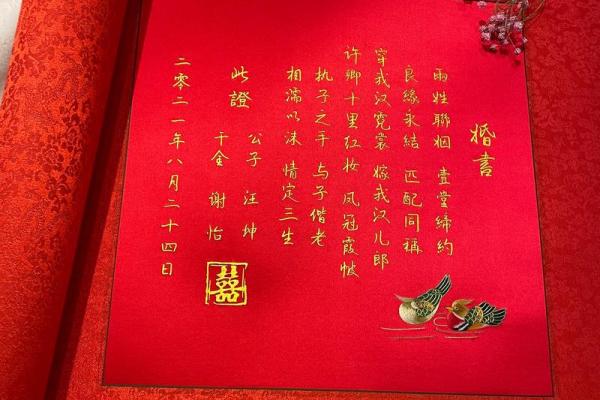 婚书
兩姓聯姻 壹堂締約
良緣永結 匹配同稱
穿我汉霓裳 嫁我汉儿郎
许卿十里红妆 凤冠霞帔
执子之手 与子偕老
相濡以沫 情定三生
此證
公子 汪坤
千金 谢怡
二零二一年八月二十四日
囍